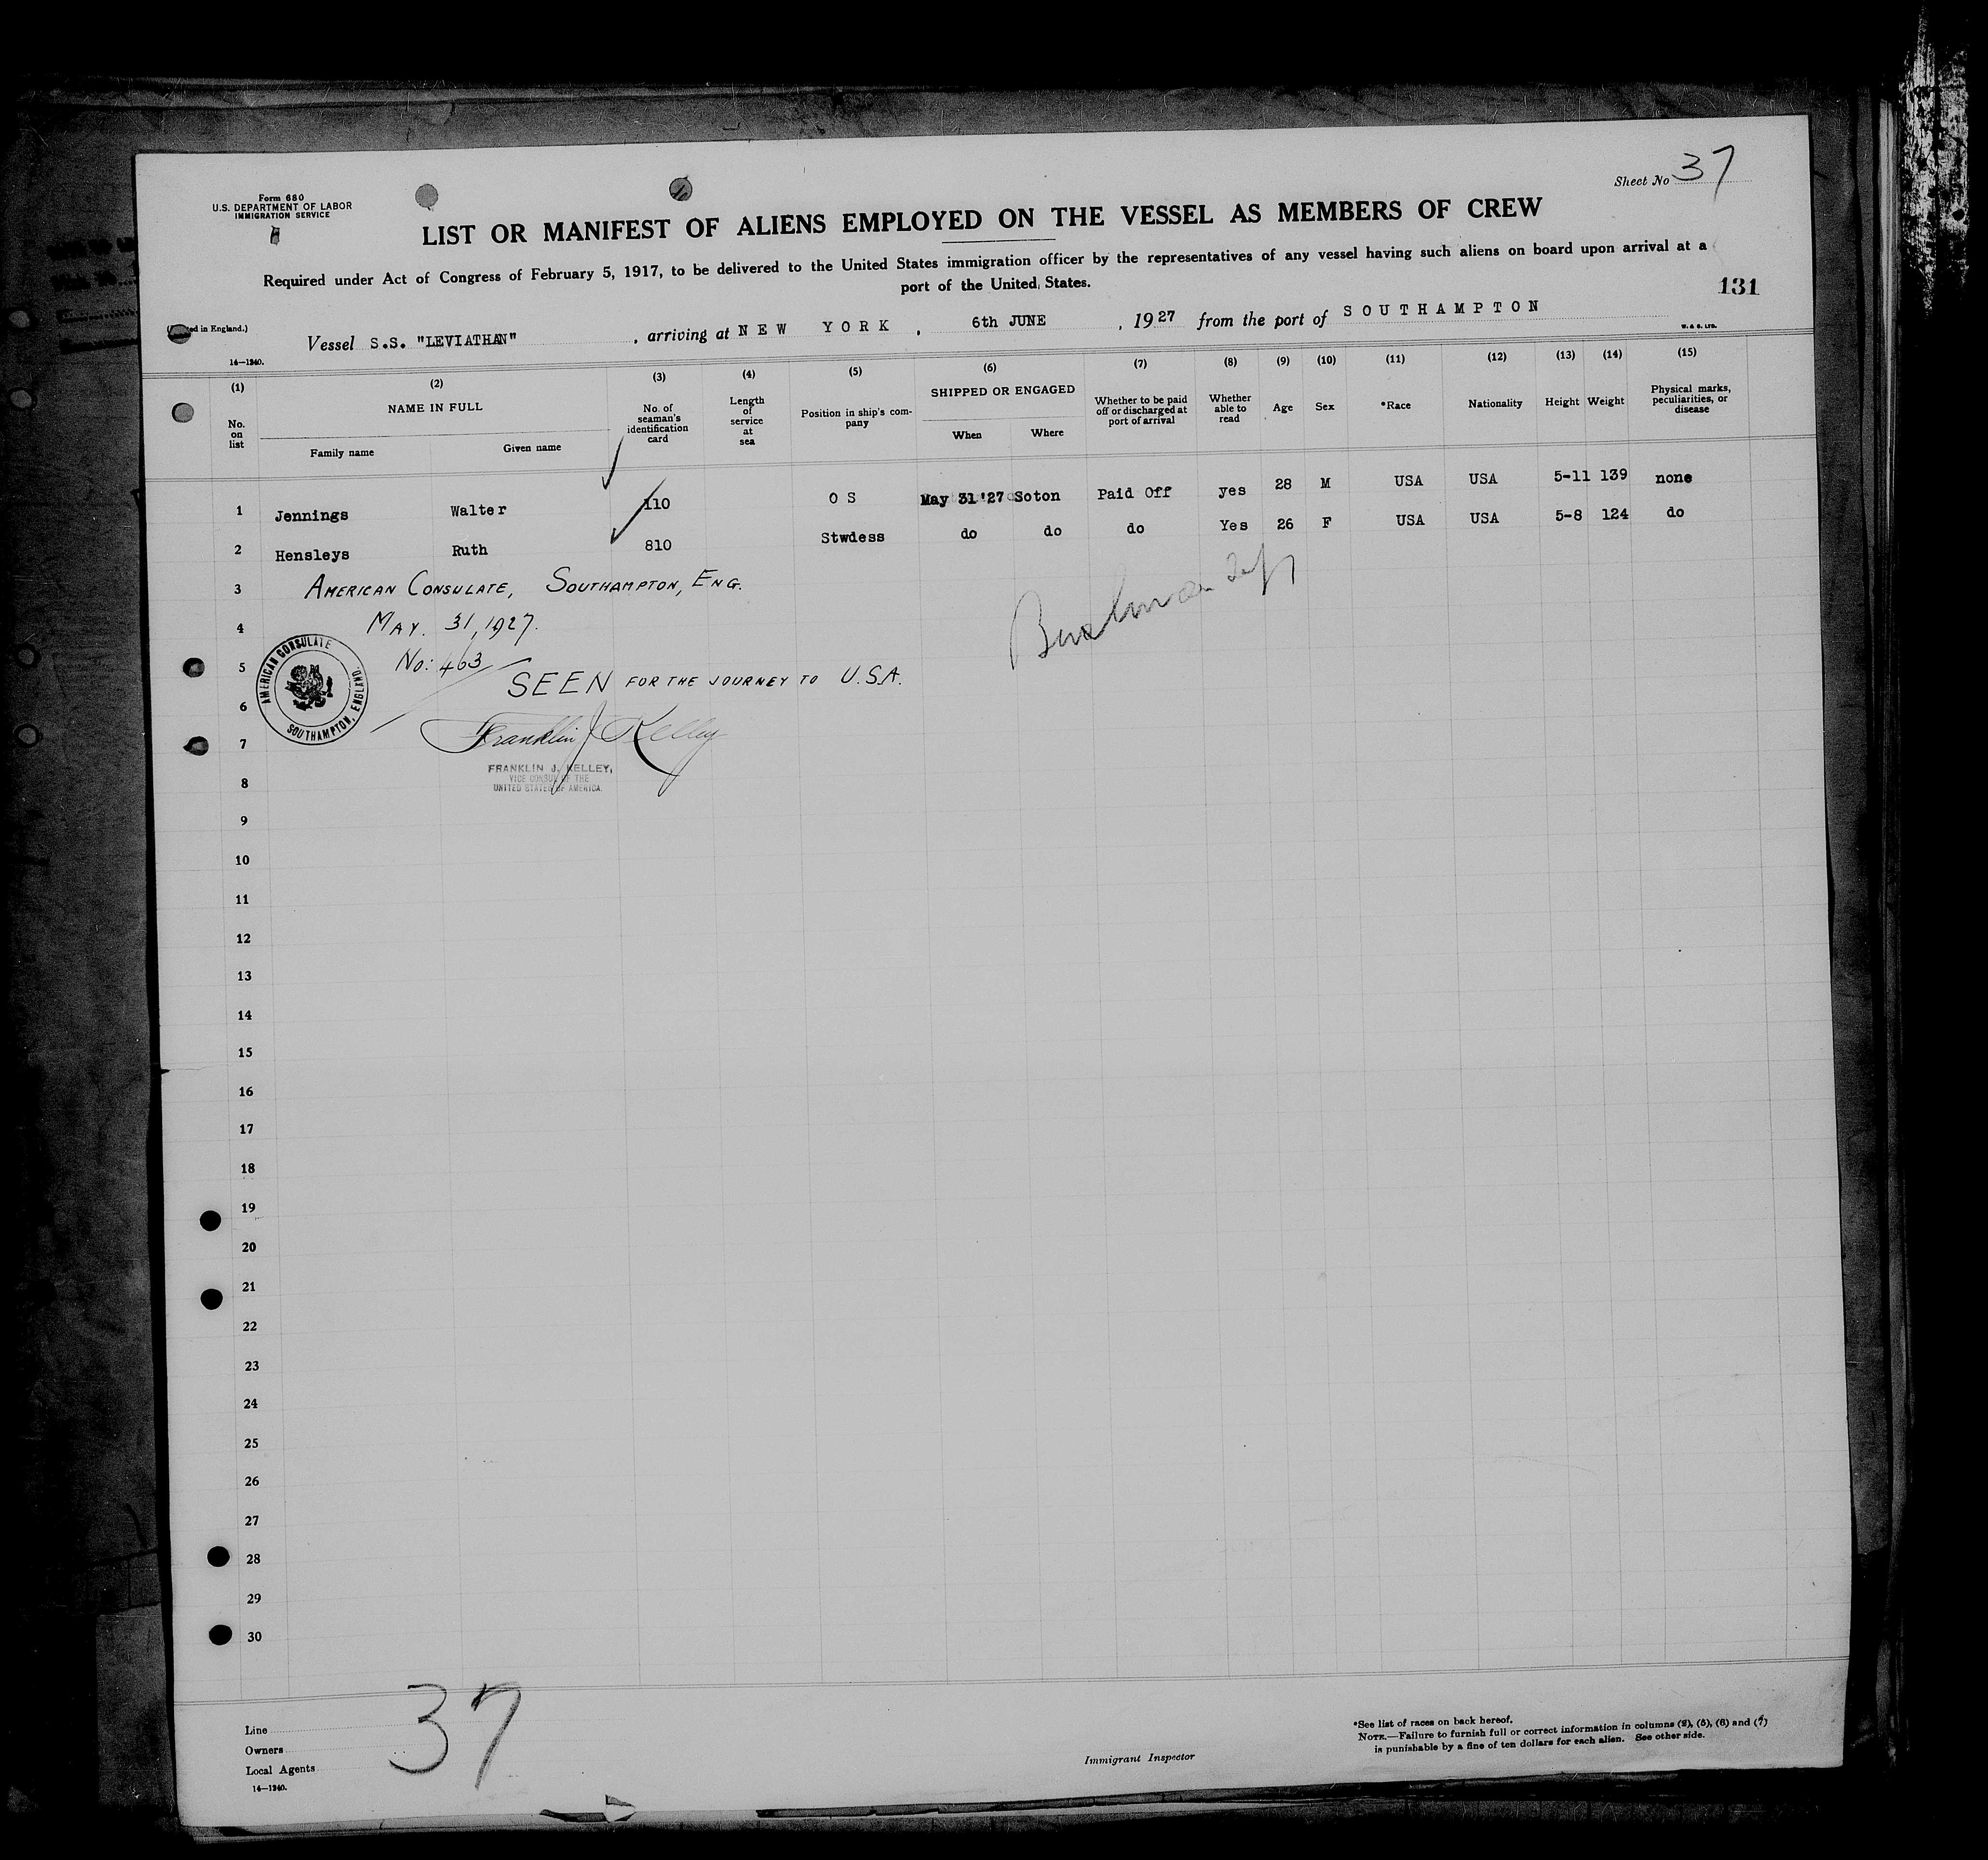 Form 680
U.S. DEPARTMENT OF LABOR
IMMIGRATION SERVICE
Sheet No 37
LIST OR MANIFEST OF ALIENS EMPLOYED ON THE VESSEL AS MEMBERS OF CREW
Required under Act of Congress of February 5, 1917, to be delivered to the United States immigration officer by the representatives of any vessel having such aliens on board upon arrival at a
port of the United States.
131
in England.)
Vessel S.S. "LEVIATHAN", arriving at NEW YORK, 6th JUNE, 1927 from the port of SOUTHAMPTON
W. & S. LTD.
14—1240.
(1) (2) (3) (4) (5) (6) (7) (8) (9) (10) (11) (12) (13) (14) (15)
No. on list
NAME IN FULL
Family name Given name
No. of seaman's identification card
Length of service at sea
Position in ship's company
SHIPPED OR ENGAGED
When Where
Whether to be paid off or discharged at port of arrival
Whether able to read
Age
Sex
*Race
Nationality
Height
Weight
Physical marks, peculiarities, or disease
1 Jennings Walter 110 O S May 31'27 Soton Paid Off yes 28 M USA USA 5-11 139 none
2 Hensleys Ruth 810 Stwdess do do do Yes 26 F USA USA 5-8 124 do
3 AMERICAN CONSULATE, SOUTHAMPTON, ENG.
4 MAY. 31, 1927.
5 No: 463
AMERICAN CONSULATE
SOUTHAMPTON, ENGLAND.
SEEN FOR THE JOURNEY TO U.S.A.
6
7 Franklin J Kelley
FRANKLIN J. KELLEY,
VICE CONSUL OF THE
UNITED STATES OF AMERICA.
8
9
10
11
12
13
14
15
16
17
18
19
20
21
22
23
24
25
26
27
28
29
30
37
Line
Owners
Local Agents
14—1240.
Immigrant Inspector
*See list of races on back hereof.
NOTE.—Failure to furnish full or correct information in columns (2), (5), (6) and (7)
is punishable by a fine of ten dollars for each alien. See other side.